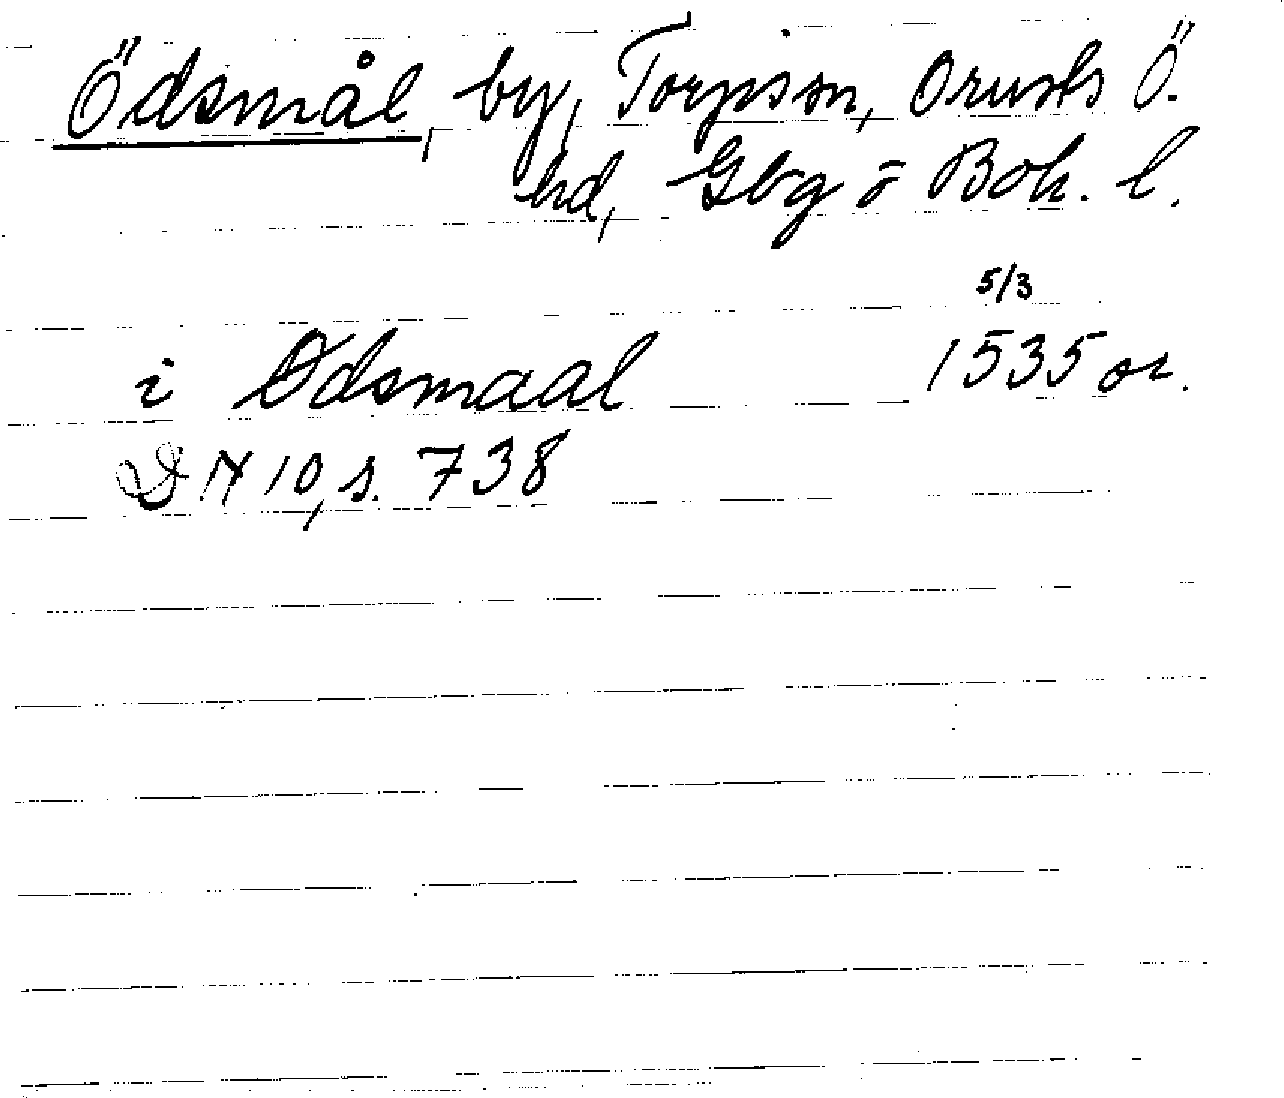 Ödsmål, by, Torps sn, Orusts Ö.
hd, Gbg o Boh. l.
5/3
i Ødsmaal 1535 or.
DN 10, s. 738